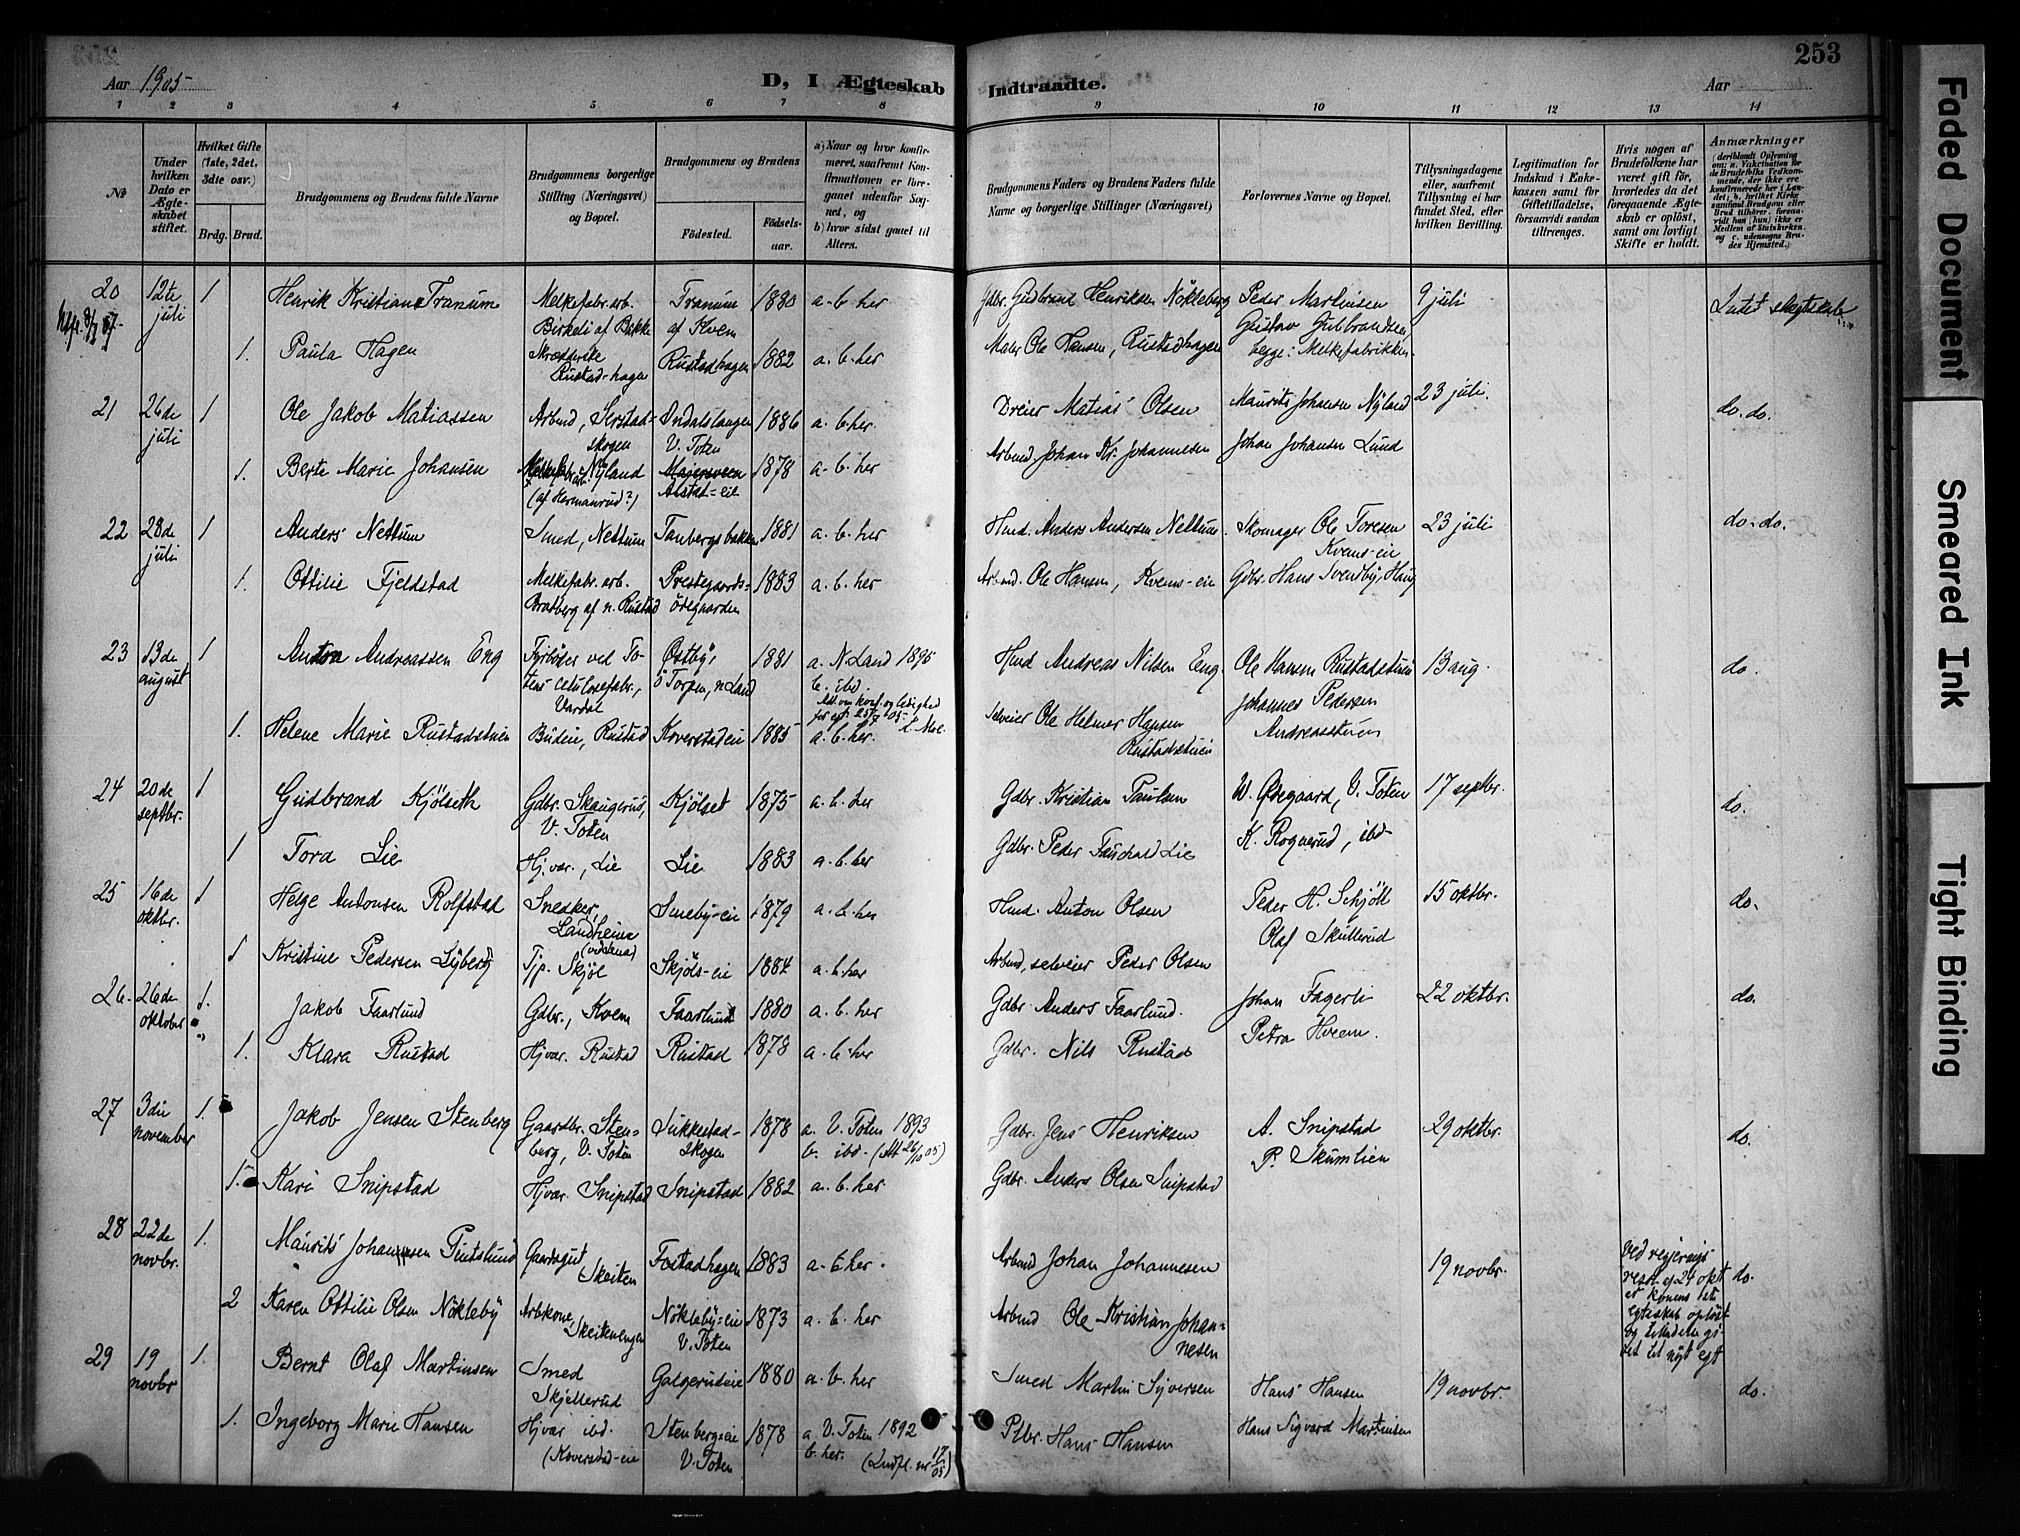 253
Aar 1905
D, I Ægteskab
Indtraadte.
Aar
1 2 3 4 5 6 7 8 9 10 11 12 13 14
No
Under hvilken Dato er Ægteskabet stiftet.
Hvilket Gifte (1ste, 2det, 3dte osv.)
Brdg. Brud.
Brudgommens og Brudens fulde Navne
Brudgommens borgerlige Stilling (Næringsvei) og Bopæl.
Brudgommens og Brudens
Fødested.
Fødselsaar.
a) Naar og hvor konfirmeret, saafremt Konfirmationen er foregaaet udenfor Sognet, og
b) hvor sidst gaaet til Alters.
Brudgommens Faders og Brudens Faders fulde Navne og borgerlige Stillinger (Næringsvei)
Forlovernes Navne og Bopæl.
Tillysningsdagene eller, saafremt Tillysning ei har fundet Sted, efter hvilken Bevilling.
Legitimation for Indskud i Enkekassen samt for Giftetilladelse, forsaavidt saadan tiltrænges.
Hvis nogen af Brudefolkene har været gift før, hvorledes da det foregaaende Ægteskab er opløst, samt om lovligt Skifte er holdt.
Anmærkninger
20 12te juli 1 Henrik Kristian Tranum Melkefabr.arb. Berkeli af Bakke Tranum af Kvem 1880 a. b. her Gdbr. Gudbrand Henriksen Nökleberg Peder Martinsen 9 juli Intet slegtskab
1. Paula Hagen Skrædderske Rustad-hagen Rustadhagen 1882 a. b. her Maler Ole Hansen, Rustadhagen Gustav Gulbrandsen begge: Melkefabrikken
21 26de juli 1 Ole Jakob Matiassen Arbmd, Serstad-skogen Indalslangen V. Toten 1886 a. b. her Dreier Matias Olsen Maurits Johansen Nyland 23 juli. do. do.
1. Berte Marie Johansen Nyland (af Hermanrud?) 1878 a. b. her Arbmd Johan Kr. Johannesen Johan Johansen Lund
22 28de juli 1 Anders Nettum Smed, Nettum Tanbergsbakken 1881 a. b. her Hmd. Anders Andersen Nettum Skomager Ole Toresen Kvems-eie 23 juli do. do.
1. Ottilie Fjeldstad Melkefabr. arb. Bratberg af n. Rustad Prestegaards-ödegaarden 1883 a. b. her Arbmd. Ole Hansen, Kvems-eie Gdbr. Hans Svendby, Haug
23 13de august 1 Anton Andreassen Eng Fyrböter ved Totens Celulosefabr., Vardal Østby, ö Torpen, n Land 1881 a. N. Land 1896 b. ibd. Hmd Andreas Nilsen Eng Ole Hansen Rustadstuen 13 aug. do.
1. Helene Marie Rustadstuen Budeie, Rustad Koverstadeie 1885 a. b. her. Selveier Ole Helmer Hansen Rustadstuen Johannes Pedersen Andreasstuen
24 20de septbr. 1 Gudbrand Kjölseth Gdbr. Skaugerud, V. Toten Kjölset 1875 a. b. her Gdbr. Kristian Paulsen W. Ødegaard, V. Toten 17 septbr. do.
1 Tora Lie Hjvar., Lie Lie 1883 a. b. her Gdbr. Peder Fauchald Lie K. Rognerud, ibd
25 16de oktbr. 1 Helge Antonsen Rolfstad Snedker, Landheim Smeby-eie 1879 a. b. her Hmd. Anton Olsen Peder H. Schjöll 15 oktbr. do.
1 Kristine Pedersen Lyberg Tjp. Skjöl Skjöls-eie 1884 a. b. her Arbmd, selveier Peder Olsen Olaf Skullerud
26. 26de oktober 1. Jakob Faarlund Gdbr., Kvem Faarlund 1880 a. b. her Gdbr Anders Faarlund. Johan Fagerli 22 oktbr. do.
1. Klara Rustad Hjvar. Rustad Rustad 1878 a. b. her Gdbr. Nils Rustad Petra Hveem.
27 3die november 1. Jakob Jensen Stenberg Gaardbr. Stenberg, V. Toten Sukkestad-skogen 1878 a. V. Toten 1893 b. ibd. (Att 26/10 05) Gdbr. Jens Henriksen A. Snipstad 29 oktbr. do.
1. Kari Snipstad Hjvar. Snipstad Snipstad 1882 a. b. her Gdbr. Anders Olsen Snipstad P. Skumlien
28 22de novbr. 1. Maurits Johannesen Gaardsgut Skeiten Fostadhagen 1883 a. b her. Arbmd Johan Johannesen 19 novbr. ved regjerings resol. af 24 okt er konens 1ste egteskab oplöst og tilladelse gi-vet til nyt egt do.
2 Karen Ottilie Olsen Nökleby Arbkone, Skeitenengen Nökleby-eie V. Toten 1873 a. b. her Arbmd Ole Kristian Johannesen
29 19 novbr 1. Bernt Olaf Martinsen Smed Skjellerud Galgerudeie 1880 a. b. her Smed Martin Syversen Hans Hansen 19 novbr. do.
1. Ingeborg Marie Hansen Hjvar ibd. (Koverstad-eie Stenbergseie V. Toten 1878 a. V. Toten 1892 b. her. Hans Hansen Hans Sigvard Martinsen
Faded Document
Smeared Ink
Tight Binding